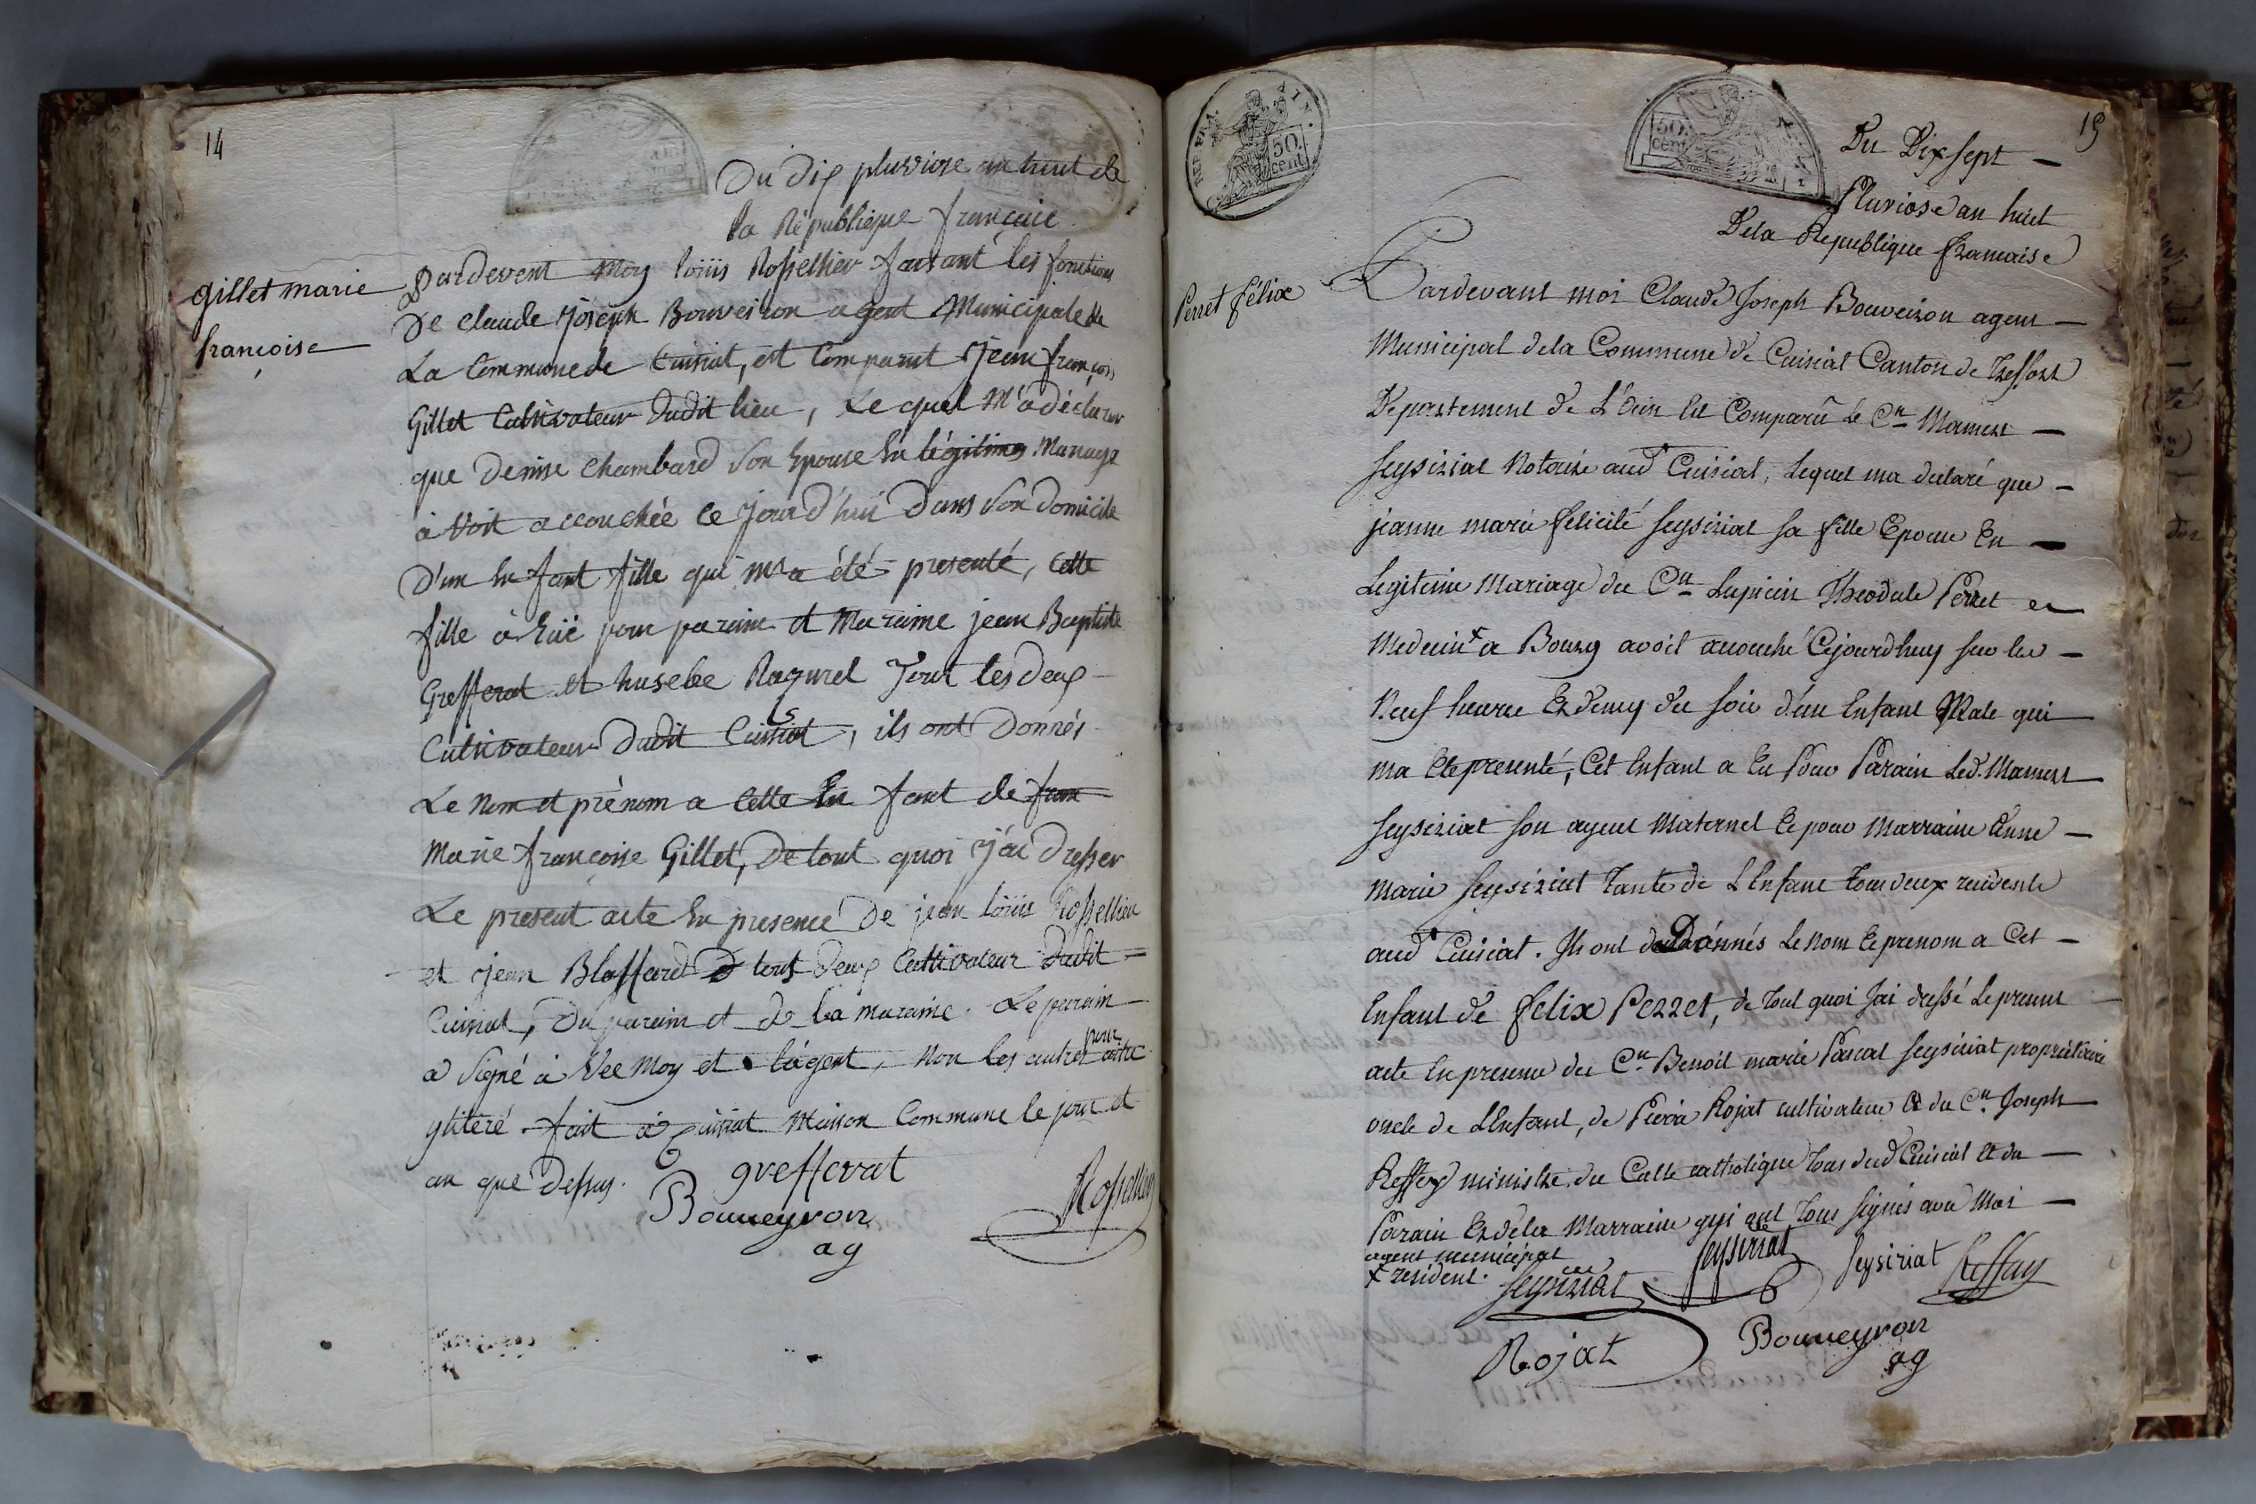 14
Du dix pluviose an huit de
la Républigue françaice
gillet marie
françoise
Pardevent Moy loüis Rossellier faisant les fonctions
De claude Joseph Bouveiron agent Municipale de
La Commune de Cuisiat, est Comparut Jean françois
Gillet Cultivateur dudit lieu, Le quel M'a déclarer
que Denise Chambard Son Epouse En légitime Mariage
à Voit accouchée ce Jourd'huï Dans Son domicile
D'un En fant fille qui m'a été presenté, Cette
fille à Eüe pour paraim et Maraime jean Baptiste
Grefferat et husebe Ragurel Tout les deux
Cultivateur Dudit Cuisiat, ils ont Donnés
Le Nom et prénom a Cette En fant de fran
Marie françoise Gillet, De tout quoi J'ai Dresser
Le present acte En presence De jean loüis Rossellier
et Jean Blaffard D tout Deux Cultivateur Dudit
Cuisiat, Du paraim et de la maraime. Le paraim
a Signé à Vec Moy et l'agent, Non les autres pour aitre
yliteré. fait à Cuisiat Maison Commune le jour et
an que Dessus.
grefferat
Boüueyron
ag
Rossellier
15
REP. FRA.
50.
cent
50.
cent
Du Dixsept
Pluviose an huit
Dela Republique francaise
Perret félix
Pardevant moi Claude Joseph Bouveiron agent
Municipal dela Commune de Cuisiat Canton de Treffort
Departement de L'Ain Est Comparû Le Cn Mamert
Seysiriat Notaire aud Cuisiat, Lequel ma declaré que
jeanne marie felicité Seysiriat Sa fille Epouse En
Legitime Mariage du Cn Lupicin Theodule Perret
Medecin x a Bourg avoit accouché Cejourdhuy Sur les
Neuf heures Et demy du Soir d'un Enfant Male qui
ma Ete presenté, Cet Enfant a Eu Pour Parain Led. Mamert
Seysiriat Son ayeul Maternel Et pour Marraine Anne
Marie Seysiriat Tante de L'Enfant Tous deux
aud Cuisiat. Ils ont Donnés Le Nom Et prenom a Cet
Enfant de felix Perret, de Tout quoi J'ai dressé Le present
acte En presence du Cn Benoit marie Pascal Seysiriat propriétaire
oncle de L'Enfant, de Pierre Rojat cultivateur Et du Cn Joseph
Reffay ministre du Culte catholique Tous dud Cuisiat Et du
Parain Et de la Marraine qui ont Tous Signés avec Moi
agent municipal
x resident.
Seysiriat
Seysiriat
Seysiriat
Reffay
Rojat
Boüueyron
ag